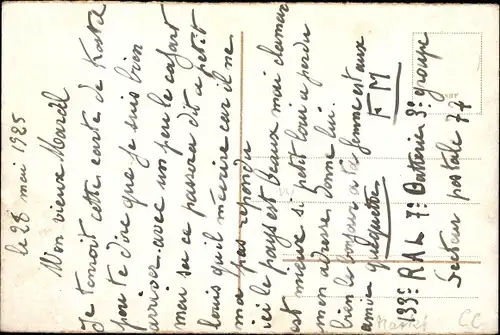 le 28 mai 1925
Mon vieux Marcel
Je t'envoit cette carte de Taza
pour te dire que je suis bien
arriver avec un peu le cafart
mais sa ce passera dit a petit
louis qu'il m'écrire car il ne
ma pas repondu
ici le pays est beaux mai clamar
est mieux si petit louis a perdu
mon adresse donne lui.
bien le bonjour a ta femme et aux
amis
FM
193e RAL 7e Batterie 3e groupe
Secteur postale 77